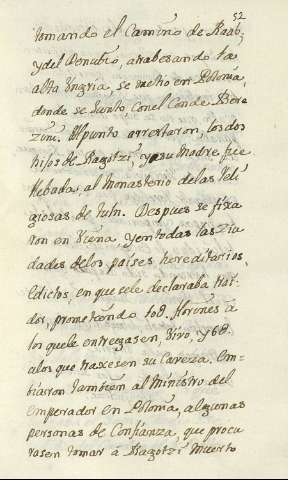 52
tomando el Camino de Raab,
y del Danubio, atrabesando la
alta Vngria, se metio en Polonia,
donde se Junto con el Conde Bere
zini. Al punto arrestaron, los dos
hijos de Ragotzi, y su Madre fue
llebada, al Monasterio de las Reli
giosas de Tuln. Despues se fixa
ron en Viena, y en todas las ziu
dades de los, paises hereditarios,
Edictos, en que se le declaraba trai
dor, prometiendo 10@. florines à
los que le entregasen, Vivo, y 6@.
a los que traxesen su Caveza. Em-
biaron tambien al Ministro del
emperador en Polonia, algunas
personas de Confianza, que procu
rasen tomar à Ragotzi Muerto